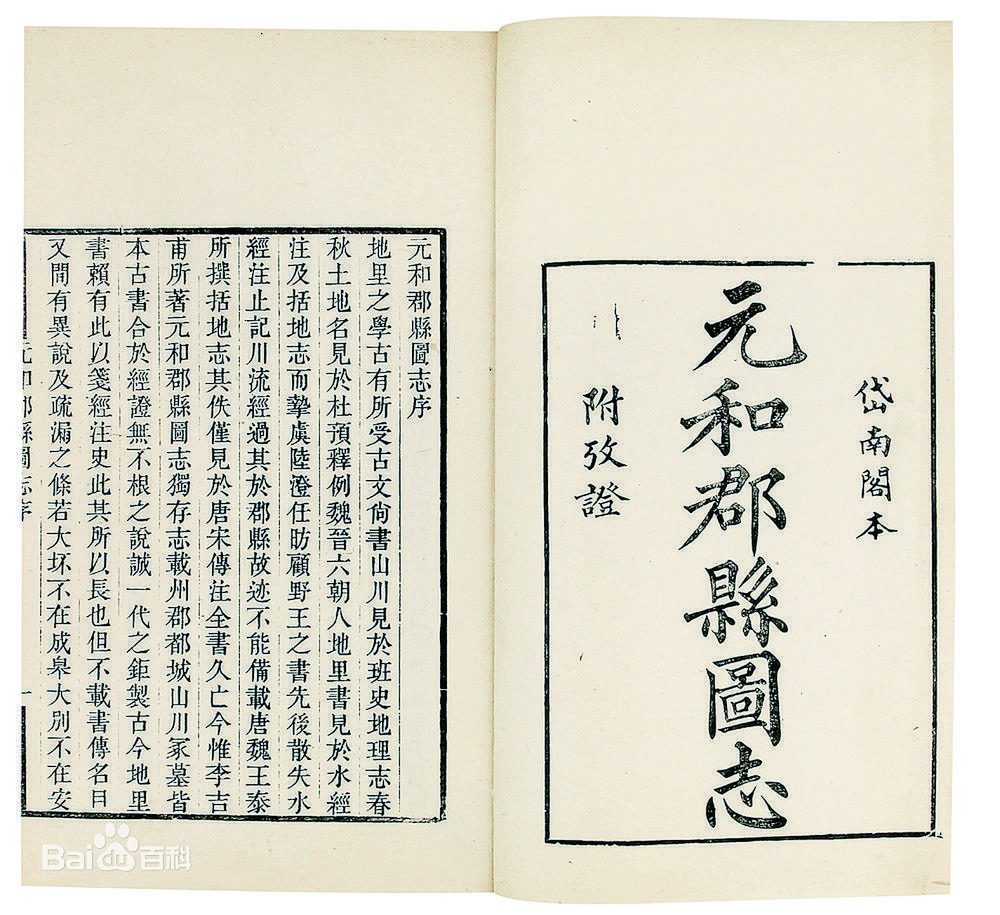 岱南閣本
元和郡縣圖志
附攷證
元和郡縣圖志序
地里之學古有所受古文尙書山川見於班史地理志春
秋土地名見於杜預釋例魏晉六朝人地里書見於水經
注及括地志而摯虞陸澄任昉顧野王之書先後散失水
經注止記川流經過其於郡縣故迹不能備載唐魏王泰
所撰括地志其佚僅見於唐宋傳注全書久亡今惟李吉
甫所著元和郡縣圖志獨存志載州郡都城山川冢墓皆
本古書合於經證無不根之說誠一代之鉅製古今地里
書賴有此以箋經注史此其所以長也但不載書傳名目
又間有異說及疏漏之條若大坯不在成皋大別不在安
元和郡縣圖志序
一
Bai du 百科